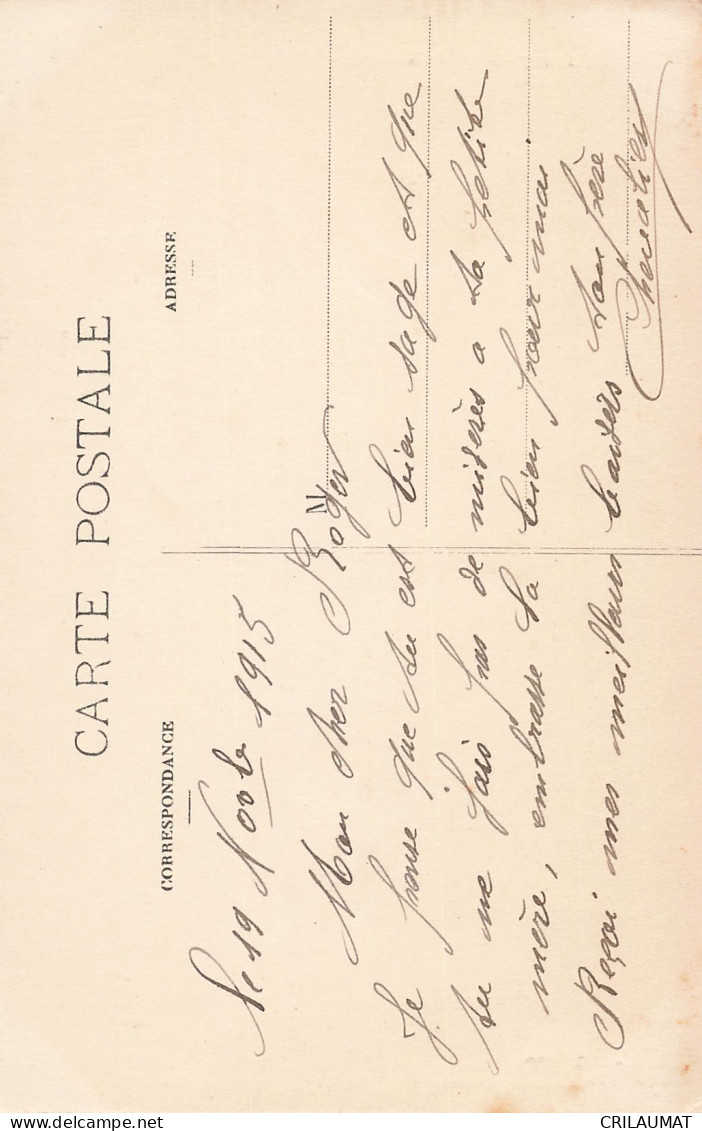 CARTE POSTALE
CORRESPONDANCE
ADRESSE
M
le 19 Novb 1915
Mon cher Roger
Je pense que tu est bien sage est que
tu ne fais pas de misères a ta petite
mère, embrasse la bien pour moi
Reçoi mes meilleurs baisers ton frère
CRILAUMAT